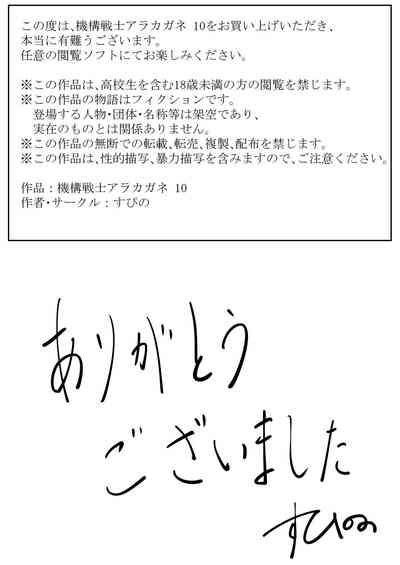 この度は、機構戦士アラカガネ 10をお買い上げいただき、
本当に有難うございます。
任意の閲覧ソフトにてお楽しみください。
※この作品は、高校生を含む18歳未満の方の閲覧を禁じます。
※この作品の物語はフィクションです。
登場する人物・団体・名称等は架空であり、
実在のものとは関係ありません。
※この作品の無断での転載、転売、複製、配布を禁じます。
※この作品は、性的描写、暴力描写を含みますので、ご注意ください。
作品：機構戦士アラカガネ 10
作者・サークル：すぴの
ありがとう
ございました
すぴの